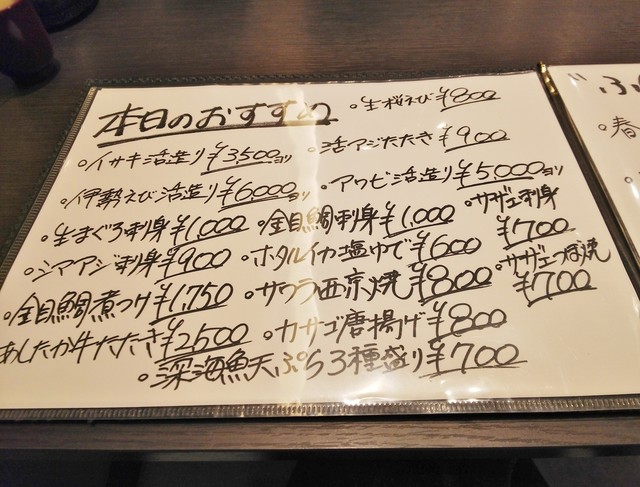 本日のおすすめ
・生桜えび ¥800
・イサキ活造り ¥3,500ヨリ
・活アジたたき ¥900
・伊勢えび活造り ¥6,000ヨリ
・アワビ活造り ¥5,000ヨリ
・生まぐろ刺身 ¥1,000
・金目鯛刺身 ¥1,000
・サザエ刺身 ¥700
・シマアジ刺身 ¥900
・ホタルイカ塩ゆで ¥600
・サザエつぼ焼 ¥700
・金目鯛煮つけ ¥1,750
・サワラ西京焼 ¥800
あしたか牛たたき ¥2500
・カサゴ唐揚げ ¥800
・深海魚天ぷら3種盛り ¥700
・春